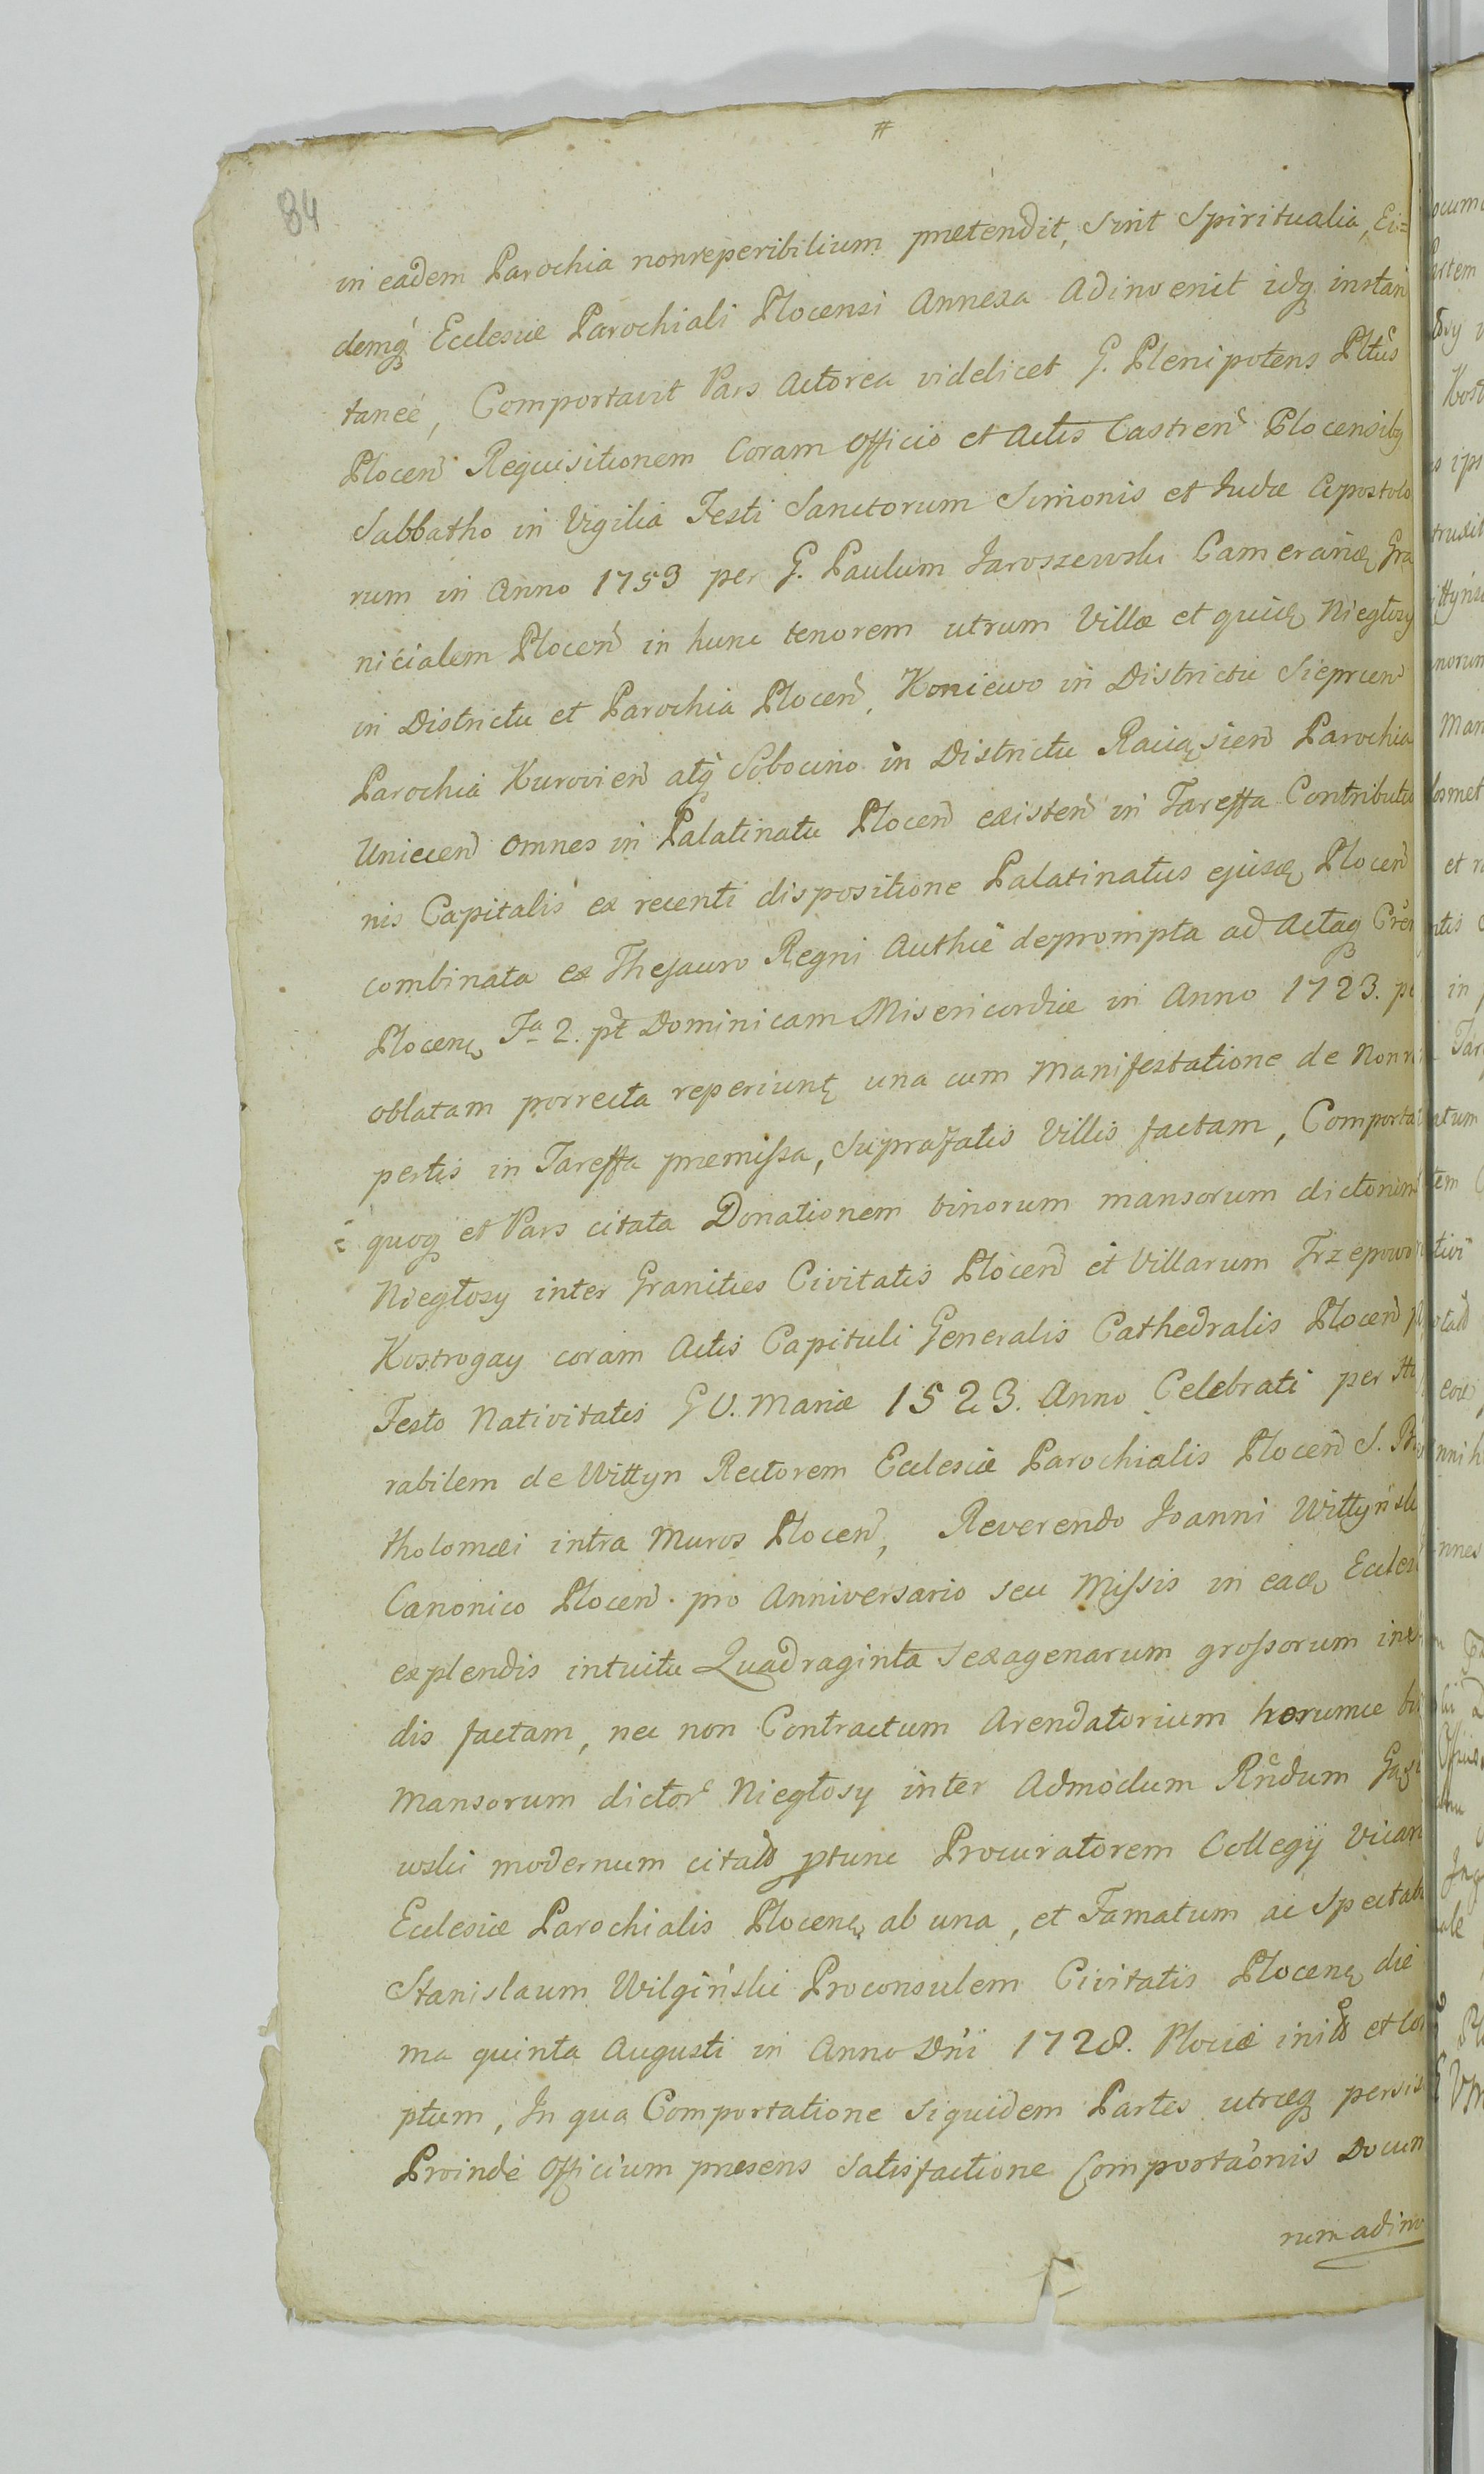 #
84
in eadem Parochia nonreperibilium prætendit, sint Spiritualia, Ei=
demq́ Ecclesiæ Parochiali Plocensi Annexa Adinvenit idq́ instan
taneé, Comportavit Pars Actorea videlicet G. Plenipotens Pltũs
Plocen̄ Requisitionem Coram Officio et Actis Castren̄ Plocensibꝫ
Sabbatho in Vigilia Festi Sanctorum Simonis et Judæ Aposto
rum in Anno 1753 per G. Paulum Jaroszewski Gra
nicialem Plocen̄ in hunc tenorem utrum Villæ et Niegłosy
in Districtu et Parochia Plocen̄, Koniewo in Districtu Sieprcen̄
Parochia Kurovien̄ atq́ Sobocino in Districtu Raciąsien̄ Parochia
Uniecen̄ Omnes in Palatinatu Plocen̄ existen̄ in Tareffa Contributio
nis Capitalis ex recenti dispositione Palatinatus Plocen̄
combinata ex Thesauro Regni deprompta ad Actaq
Plocenę Fa 2. pt Dominicam Misericordiæ in Anno 1723. p
oblatam porrecta reperiunt̨ una cum Manifestatione de Nonre
pertis in Tareffa præmissa, Suprafatis Villis factam, Comporta
quoq́ et Pars citata Donationem binorum mansorum dictorum
Niegłosy inter Granities Civitatis Plocen̄ et Villarum Trzepowo
Kostrogay coram Actis Capituli Generalis Cathedralis Plocen̄
Festo Nativitatis G V. Mariæ 1523. Anno Celebrati per
rabilem de Wittyn Rectorem Ecclesiæ Parochialis Plocen̄ S.
tholomæi intra Muros Plocen̄, Reverendo Joanni Wittyńsk
Canonico Plocen̄. pro Anniversario seu Missis in Eccles
explendis intuitu Quadraginta Sexagenarum grossorum in
dis factam, nec non Contractum Arendatorium horumce bi
Mansorum dictor̄ Niegłosy inter Admodum Rñdum
wski modernum ptunc Procuratorem Collegij Vicar
Ecclesiæ Parochialis Plocenę ab una, et Famatum ac Spectab
Stanislaum Wilgiński Proconsulem Civitatis Plocenę die
ma quinta Augusti in Anno Dñi 1728. Plociæ et
ptum, In qua Comportatione siquidem Partes utræq́ persis
Proinde Officium præsens Satisfactione Comportãonis Docum
rum adinv